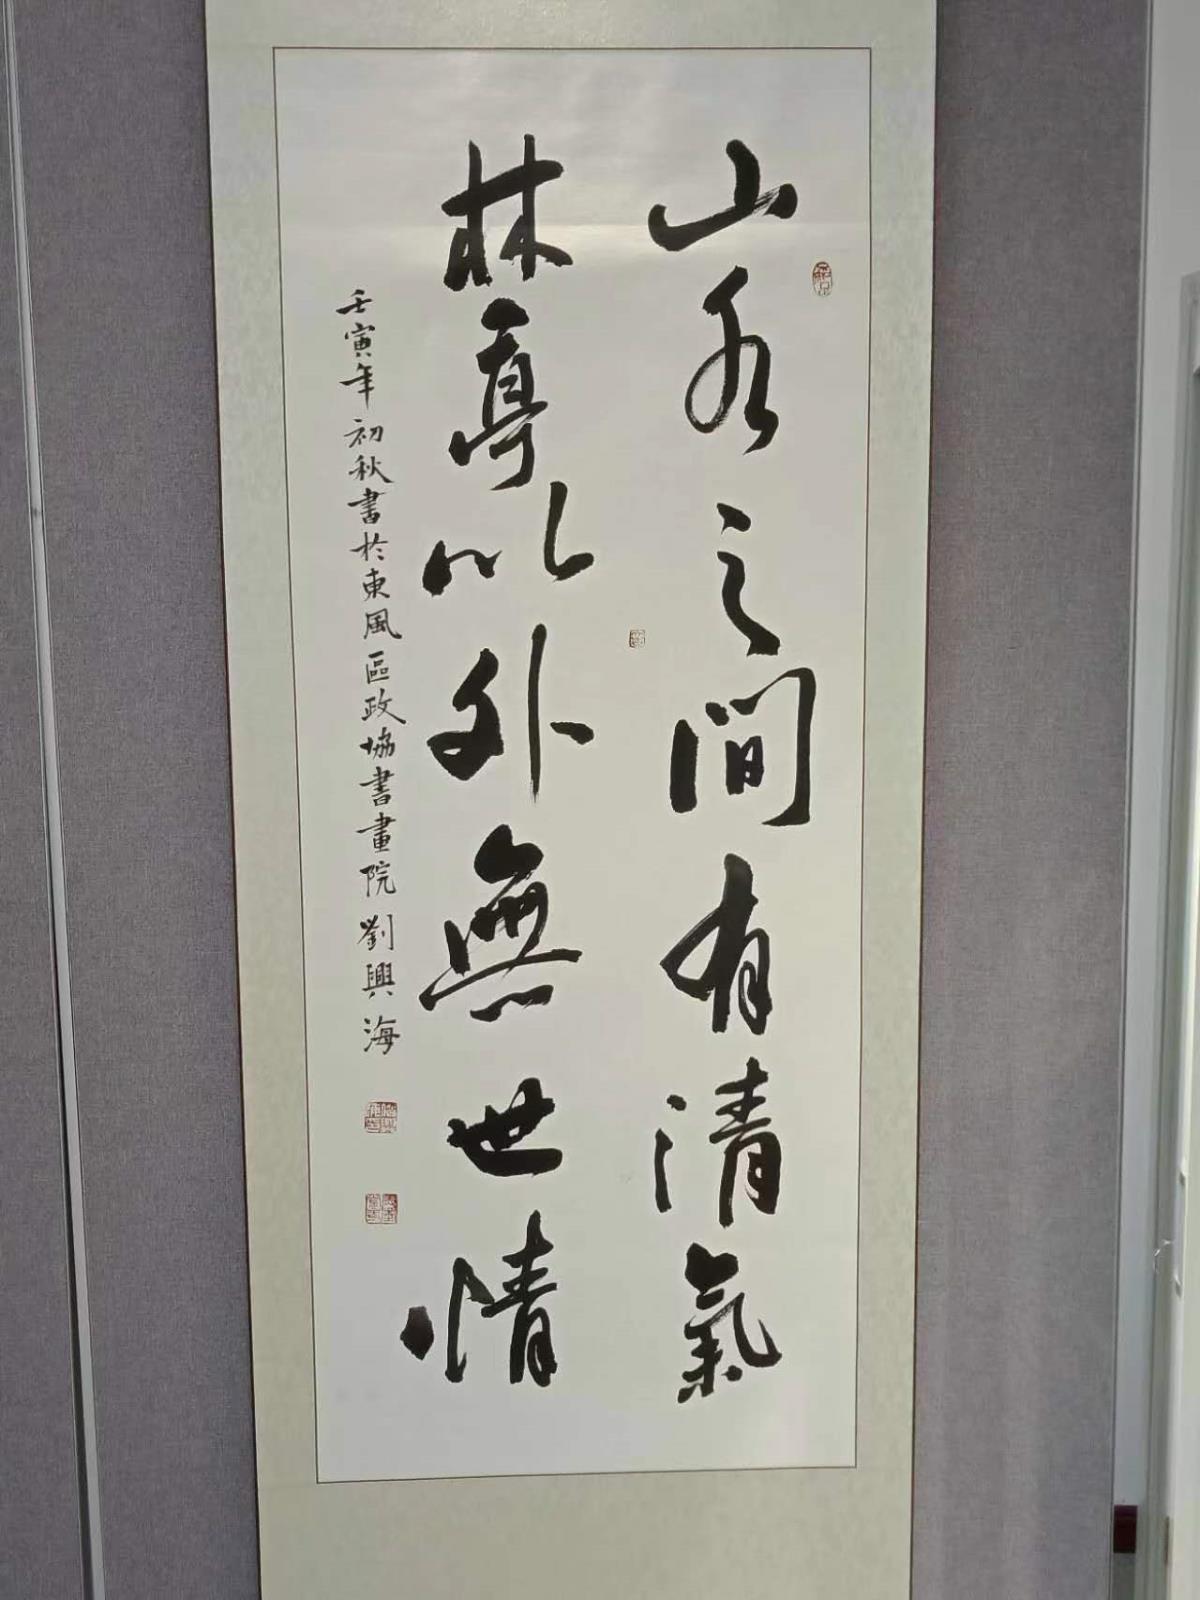 山水之間有清氣
林亭以外無世情
壬寅年初秋書於東風區政協書畫院劉興海